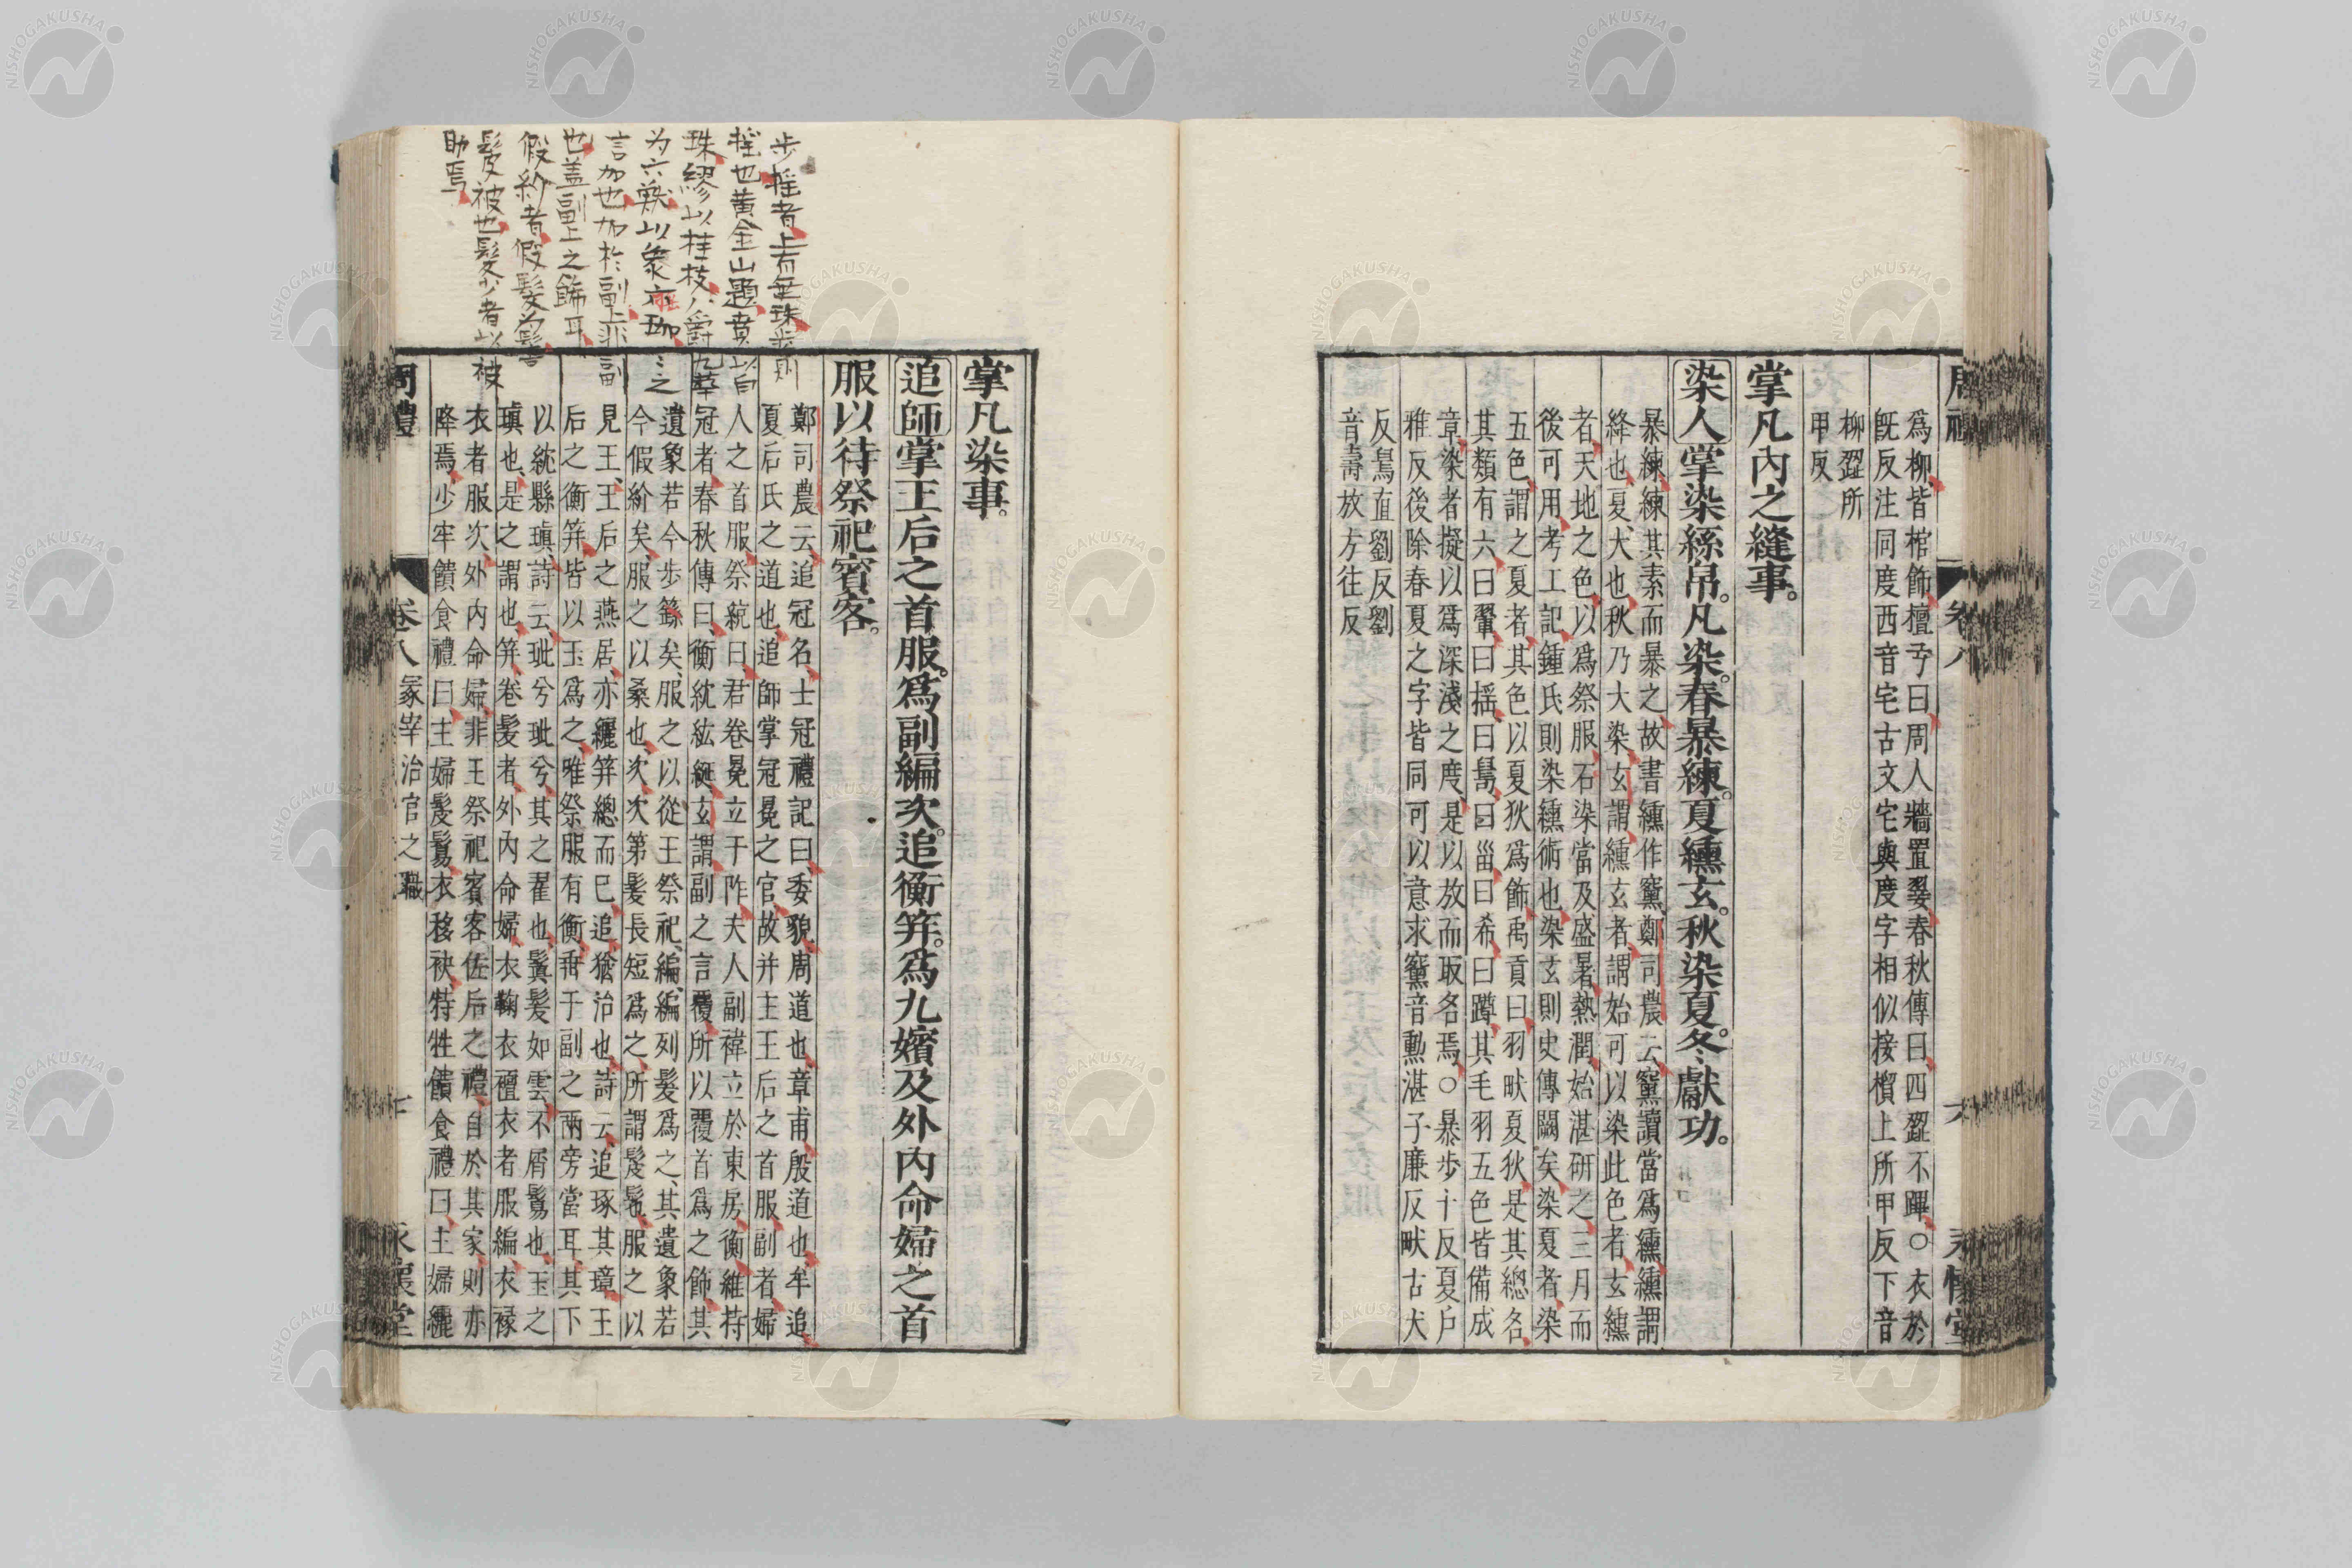 周禮 卷八 六 永懷堂
爲柳皆棺飾檀弓曰周人牆置翣春秋傳曰四歰不蹕○衣於
旣反注同度西音宅古文宅與度字相似按橮上所甲反下音
柳歰所
甲反
掌凡內之縫事。
染人掌染絲帛。凡染。春暴練。夏纁玄。秋染夏。冬獻功。
暴練練其素而暴之故書纁作䵫鄭司農云䵫讀當爲纁纁謂
絳也夏大也秋乃大染玄謂纁玄者謂始可以染此色者玄纁
者天地之色以爲祭服石染當及盛暑熱潤始湛研之三月而
後可用考工記鍾氏則染纁術也染玄則史傳闕矣染夏者染
五色謂之夏者其色以夏狄爲飾禹貢曰羽畎夏狄是其總名
其類有六曰翬曰揺曰䎘曰甾曰希曰蹲其毛羽五色皆備成
章染者擬以爲深淺之度是以放而取名焉○暴步十反夏戶
雅反後除春夏之字皆同可以意求䵫音勳湛子廉反畎古犬
反䎘直劉反劉
音壽放方往反
掌凡染事。
追師掌王后之首服。爲副編次。追衡笄。爲九嬪及外內命婦之首
服以待祭祀賓客。
鄭司農云追冠名士冠禮記曰委貌周道也章甫殷道也牟追
夏后氏之道也追師掌冠冕之官故并主王后之首服副者婦
人之首服祭統曰君卷冕立于阼夫人副褘立於東房衡維持
冠者春秋傳曰衡紞紘綖玄謂副之言覆所以覆首爲之飾其
遺象若今步繇矣服之以從王祭祀編編列髮爲之其遺象若
今假紒矣服之以桑也次次第髮長短爲之所謂髲髢服之以
見王王后之燕居亦纚笄總而已追猶治也詩云追琢其璋王
后之衡笄皆以玉爲之唯祭服有衡垂于副之兩旁當耳其下
以紞縣瑱詩云玼兮玼兮其之翟也鬒髮如雲不屑鬄也玉之
瑱也是之謂也笄卷髮者外內命婦衣鞠衣襢衣者服編衣褖
衣者服次外內命婦非王祭祀賓客佐后之禮自於其家則亦
降焉少牢饋食禮曰主婦髲鬄衣移袂特牲饋食禮曰主婦纚
周禮 卷八 冢宰治官之職 七 永懷堂
步揺者上有垂珠步則
揺也黄金山題貫白
珠繆以桂枝八爵九華
为六獸山以衆亦珈之
言加也加於副上非副
也盖副上之餙耳
假紒者假髮为髻
髲被也髮少者以被
助焉